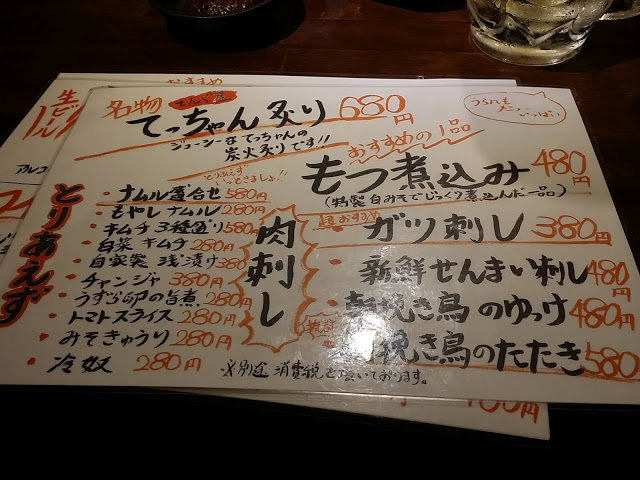 おすすめ
生ビール
名物 てんぐ屋
てっちゃん炙り 680円
ジューシーなてっちゃんの
炭火炙りです!!
うられも
メニュー
いっぱい
おすすめの1品
もつ煮込み 480円
(特製白みそでじっくり煮込んだ一品)
とりあえず
ナムル盛合せ 580円
もやしナムル 280円
キムチ3種盛り 580円
白菜キムチ 280円
自家製浅漬け 380円
チャンジャ 380円
うずら卵の旨煮 280円
トマトスライス 280円
みそきゅうり 280円
冷奴 280円
肉刺し
ガツ刺し 380円
新鮮せんまい刺し 480円
朝挽き鳥のゆっけ 480円
挽き鳥のたたき 580
※別途 消費税を頂いております。